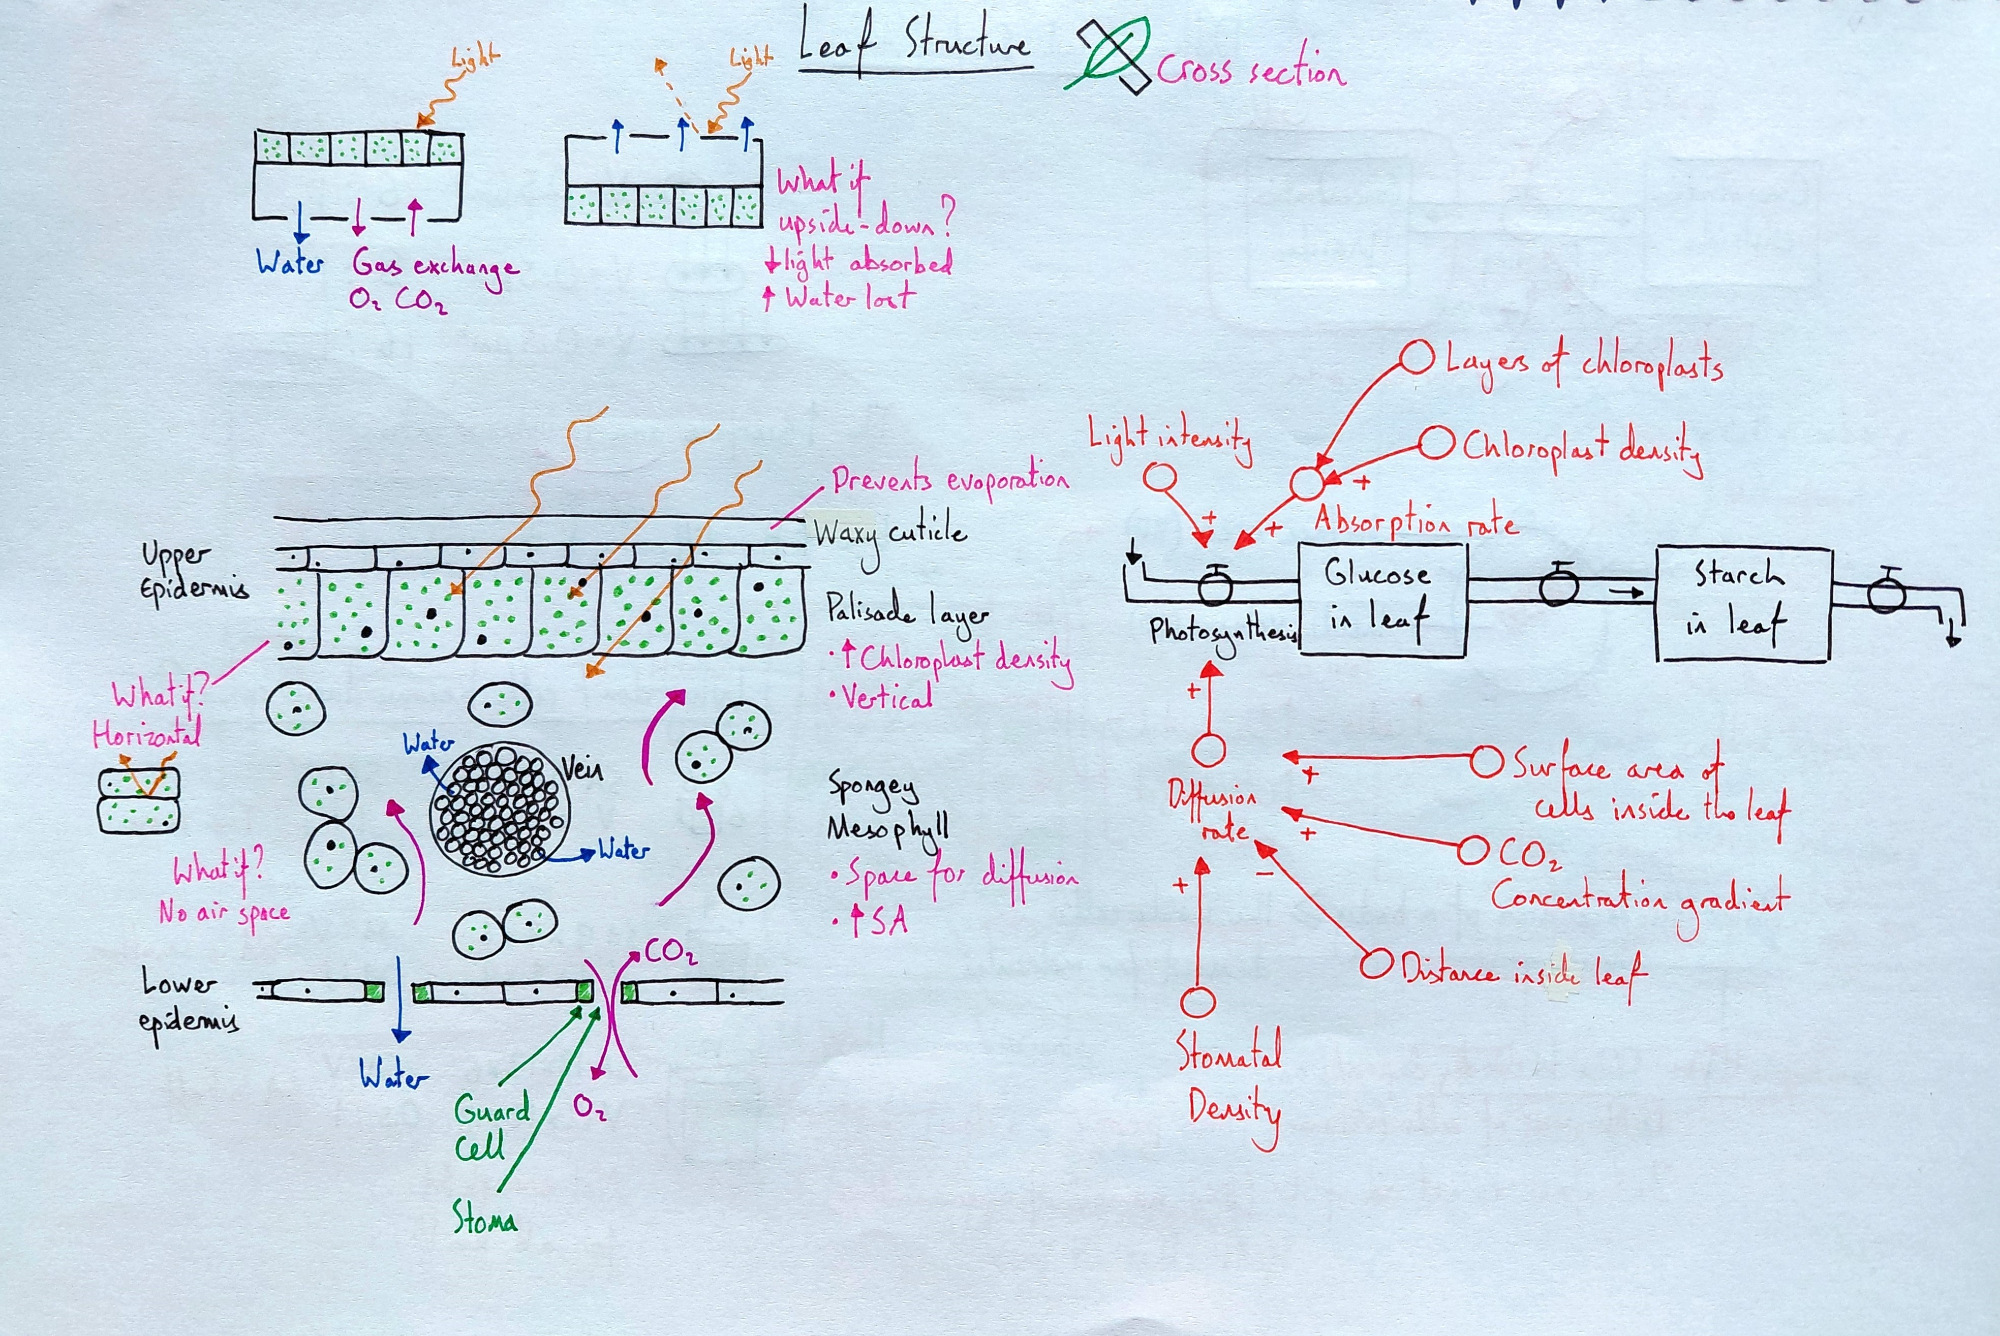 Leaf Structure
Cross section
Light
Light
Water
Gas exchange
O₂ CO₂
What if
upside-down?
↓light absorbed
↑ Water lost
Prevents evoporation
Waxy cuticle
Upper
Epidermis
Palisade layer
·↑Chloroplast density
·Vertical
What if?
Horizontal
Water
Vein
Water
Spongey
Mesophyll
• Space for diffusion
• ↑SA
What if?
No air space
CO₂
Lower
epidermis
Water
O₂
Guard
Cell
Stoma
Layers of chloroplasts
Light intensity
Chloroplast density
+
+
+
Absorption rate
Glucose
in leaf
Starch
in leaf
Photosynthesis
+
Diffusion
rate
+
Surface area of
cells inside the leaf
+
CO₂
Concentration gradient
–
Distance inside leaf
+
Stomatal
Density